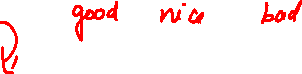 good nice bad